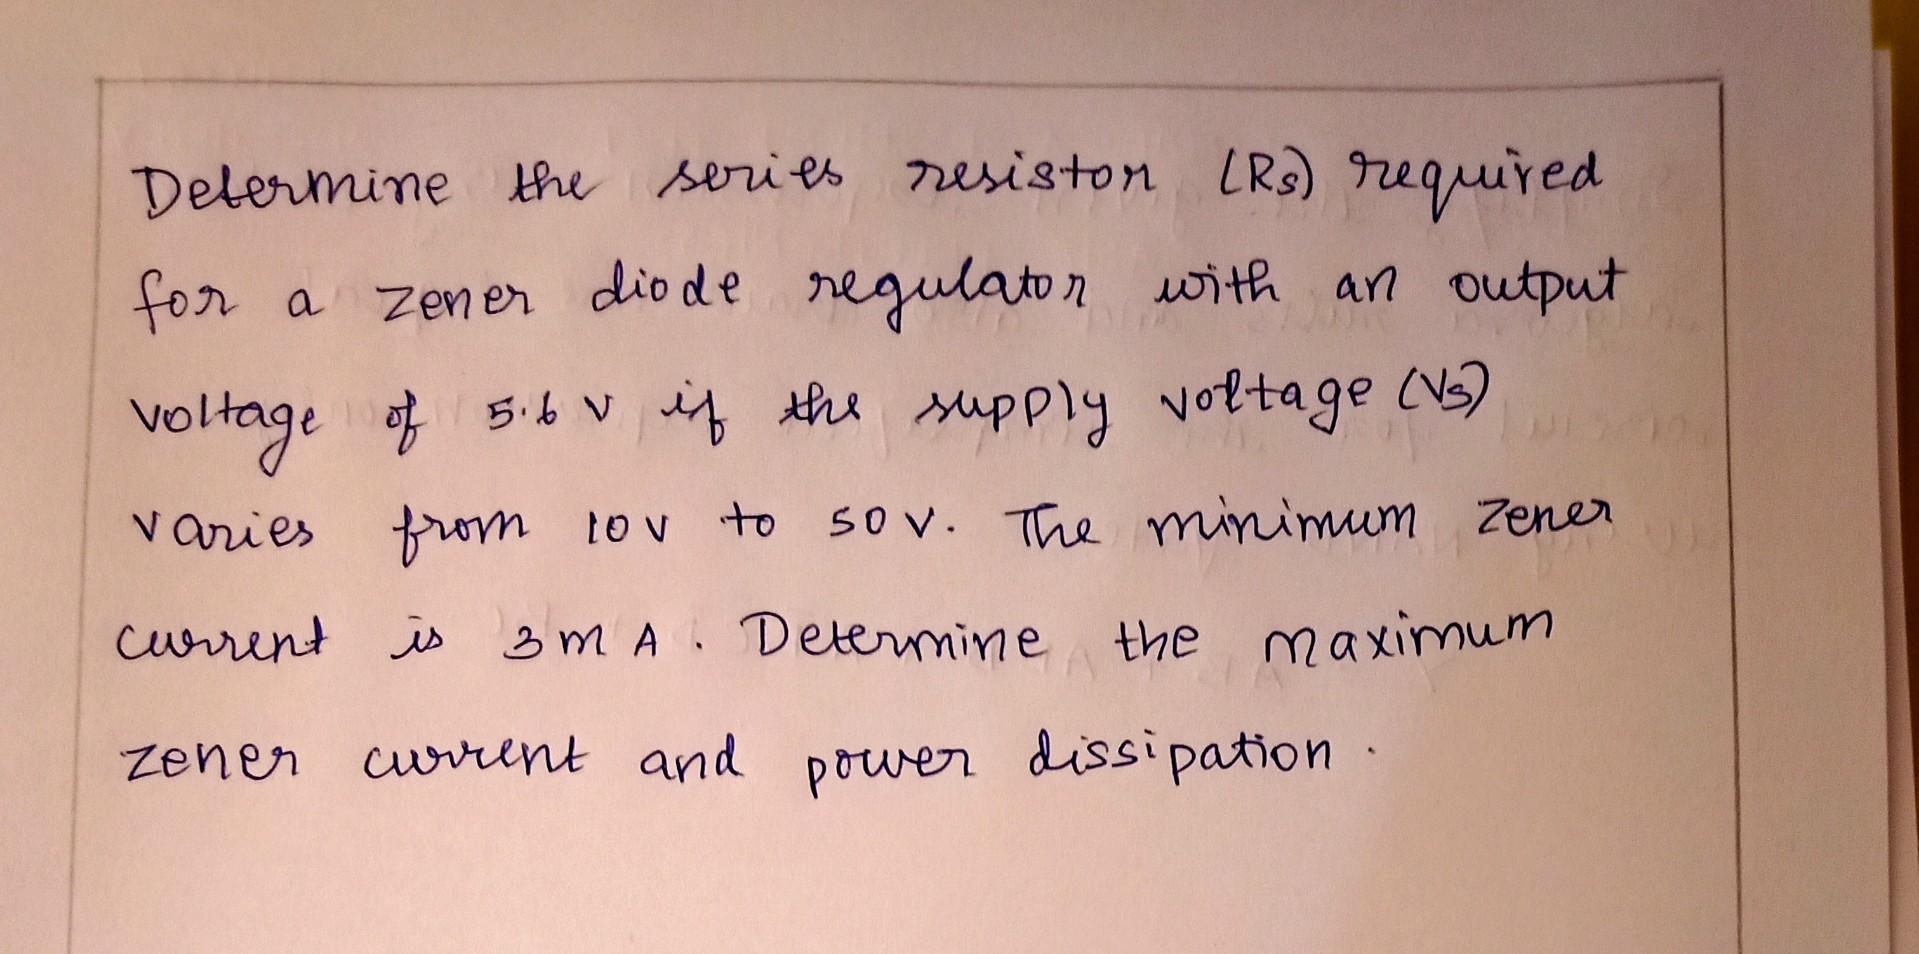 Determine the series resistor (Rs) required
for a zener diode regulator with an output
voltage of 5.6 V if the supply voltage (Vs)
varies from 10 V to 50 V. The minimum zener
current is 3 mA. Determine the maximum
zener current and power dissipation.